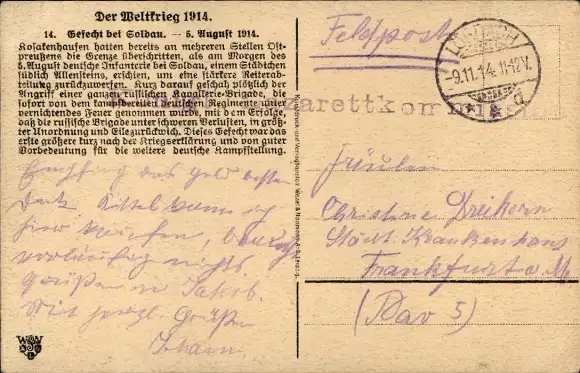 Der Weltkrieg 1914.
14. Gefecht bei Soldau. — 5. August 1914.
Kosakenhaufen hatten bereits an mehreren Stellen Ost-
preußens die Grenze überschritten, als am Morgen des
5. August deutsche Infanterie bei Soldau, einem Städtchen
südlich Allensteins, erschien, um eine stärkere Reiterab-
teilung zurückzuwerfen. Kurz darauf geschah plötzlich der
Angriff einer ganzen russischen Kavallerie-Brigade, die
sofort von dem kampfbereiten deutschen Regimente unter
vernichtendes Feuer genommen wurde, mit dem Erfolge,
daß die russische Brigade unter schweren Verlusten, in größ-
ter Unordnung und Eile zurückwich. Dieses Gefecht war das
erste größere kurz nach der Kriegserklärung und von guter
Vorbedeutung für die weitere deutsche Kampfstellung.
Empfing das Geld besten
Dank
hier kaufen, brauche
vorläufig nichts
Grüßen
Mit herzl. Grüßen
Johann
Feldpost
LÖRRACH
-9.11.14.11-12V.
Lazarettkom
Fräulein
Christine Dreikorn
Städt. Krankenhaus
Frankfurt a M
(Pav 5)